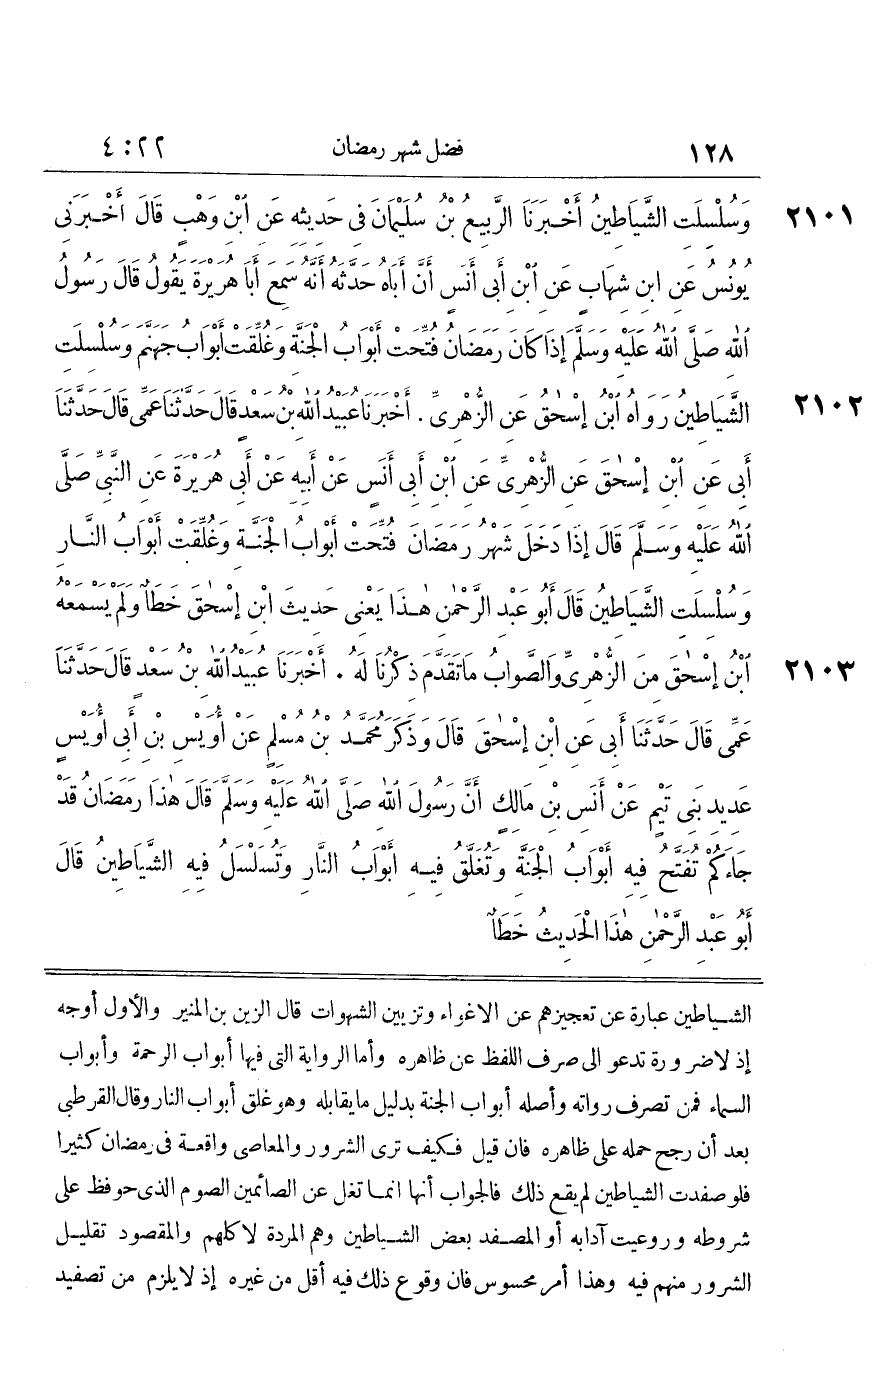 ١٢٨ فضل شهر رمضان ٢٢ : ٤
٢١٠١ وَسُلْسِلَتِ الشَّيَاطِينُ أَخْبَرَنَا الرَّبِيعُ بْنُ سُلَيْمَانَ فِي حَدِيثِهِ عَنِ ابْنِ وَهْبٍ قَالَ أَخْبَرَنِي
يُونُسُ عَنِ ابْنِ شِهَابٍ عَنِ ابْنِ أَبِي أَنَسٍ أَنَّ أَبَاهُ حَدَّثَهُ أَنَّهُ سَمِعَ أَبَا هُرَيْرَةَ يَقُولُ قَالَ رَسُولُ
اللهِ صَلَّى اللهُ عَلَيْهِ وَسَلَّمَ إِذَا كَانَ رَمَضَانُ فُتِّحَتْ أَبْوَابُ الْجَنَّةِ وَغُلِّقَتْ أَبْوَابُ جَهَنَّمَ وَسُلْسِلَتِ
٢١٠٢ الشَّيَاطِينُ رَوَاهُ ابْنُ إِسْحٰقَ عَنِ الزُّهْرِيِّ . أَخْبَرَنَا عُبَيْدُ اللهِ بْنُ سَعْدٍ قَالَ حَدَّثَنَا عَمِّي قَالَ حَدَّثَنَا
أَبِي عَنِ ابْنِ إِسْحٰقَ عَنِ الزُّهْرِيِّ عَنِ ابْنِ أَبِي أَنَسٍ عَنْ أَبِيهِ عَنْ أَبِي هُرَيْرَةَ عَنِ النَّبِيِّ صَلَّى
اللهُ عَلَيْهِ وَسَلَّمَ قَالَ إِذَا دَخَلَ شَهْرُ رَمَضَانَ فُتِّحَتْ أَبْوَابُ الْجَنَّةِ وَغُلِّقَتْ أَبْوَابُ النَّارِ
وَسُلْسِلَتِ الشَّيَاطِينُ قَالَ أَبُو عَبْدِ الرَّحْمٰنِ هٰذَا يَعْنِي حَدِيثَ ابْنِ إِسْحٰقَ خَطَأٌ وَلَمْ يَسْمَعْهُ
٢١٠٣ ابْنُ إِسْحٰقَ مِنَ الزُّهْرِيِّ وَالصَّوَابُ مَا تَقَدَّمَ ذِكْرُنَا لَهُ . أَخْبَرَنَا عُبَيْدُ اللهِ بْنُ سَعْدٍ قَالَ حَدَّثَنَا
عَمِّي قَالَ حَدَّثَنَا أَبِي عَنِ ابْنِ إِسْحٰقَ قَالَ وَذَكَرَ مُحَمَّدُ بْنُ مُسْلِمٍ عَنْ أُوَيْسِ بْنِ أَبِي أُوَيْسٍ
عَدِيدِ بَنِي تَيْمٍ عَنْ أَنَسِ بْنِ مَالِكٍ أَنَّ رَسُولَ اللهِ صَلَّى اللهُ عَلَيْهِ وَسَلَّمَ قَالَ هٰذَا رَمَضَانُ قَدْ
جَاءَكُمْ تُفَتَّحُ فِيهِ أَبْوَابُ الْجَنَّةِ وَتُغَلَّقُ فِيهِ أَبْوَابُ النَّارِ وَتُسَلْسَلُ فِيهِ الشَّيَاطِينُ قَالَ
أَبُو عَبْدِ الرَّحْمٰنِ هٰذَا الْحَدِيثُ خَطَأٌ
الشياطين عبارة عن تعجيزهم عن الاغواء وتزيين الشهوات قال الزين بن المنير والأول أوجه
إذ لا ضرورة تدعو الى صرف اللفظ عن ظاهره وأما الرواية التى فيها أبواب الرحمة وأبواب
السماء فمن تصرف رواته وأصله أبواب الجنة بدليل ما يقابله وهو غلق أبواب النار وقال القرطبى
بعد أن رجح حمله على ظاهره فان قيل فكيف ترى الشرور والمعاصى واقعة فى رمضان كثيرا
فلو صفدت الشياطين لم يقع ذلك فالجواب أنها انما تغل عن الصائمين الصوم الذى حوفظ على
شروطه وروعيت آدابه أو المصفد بعض الشياطين وهم المردة لا كلهم والمقصود تقليل
الشرور منهم فيه وهذا أمر محسوس فان وقوع ذلك فيه أقل من غيره إذ لا يلزم من تصفيد